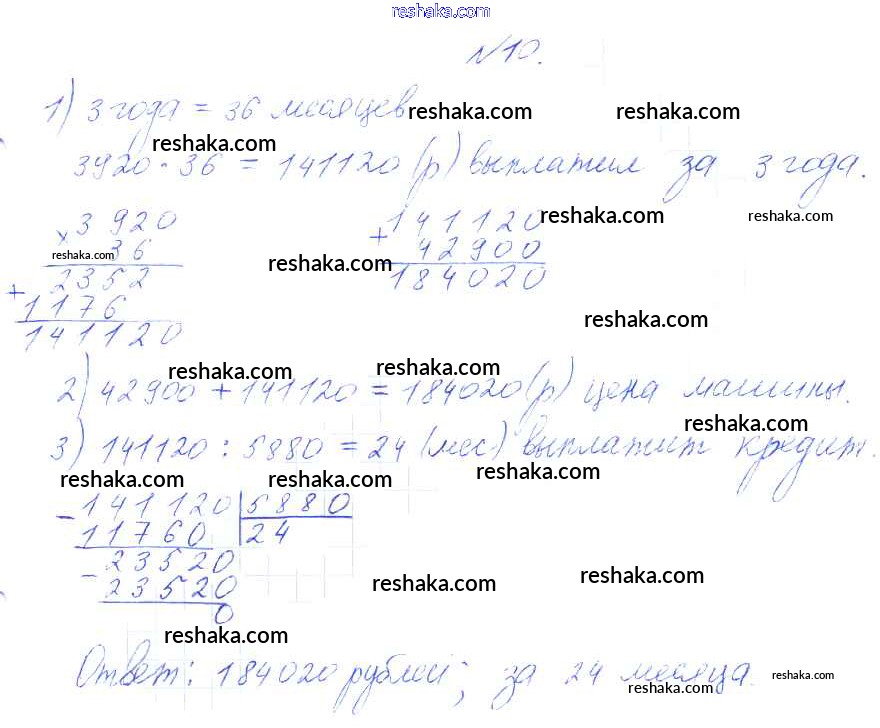 reshaka.com
№10.
1) 3 года = 36 месяцев reshaka.com reshaka.com
reshaka.com
3920 · 36 = 141120 (р) выплатил за 3 года.
× 3920 + 141120 reshaka.com reshaka.com
reshaka.com 36 42900
2352 reshaka.com 184020
+ 1176
141120 reshaka.com
reshaka.com reshaka.com
2) 42900 + 141120 = 184020 (р) цена машины.
reshaka.com
3) 141120 : 5880 = 24 (мес) выплатит кредит.
reshaka.com reshaka.com reshaka.com
- 141120 | 5880
11760 24
- 23520
23520 reshaka.com reshaka.com
0
reshaka.com
Ответ: 184020 рублей; за 24 месяца. reshaka.com
reshaka.com